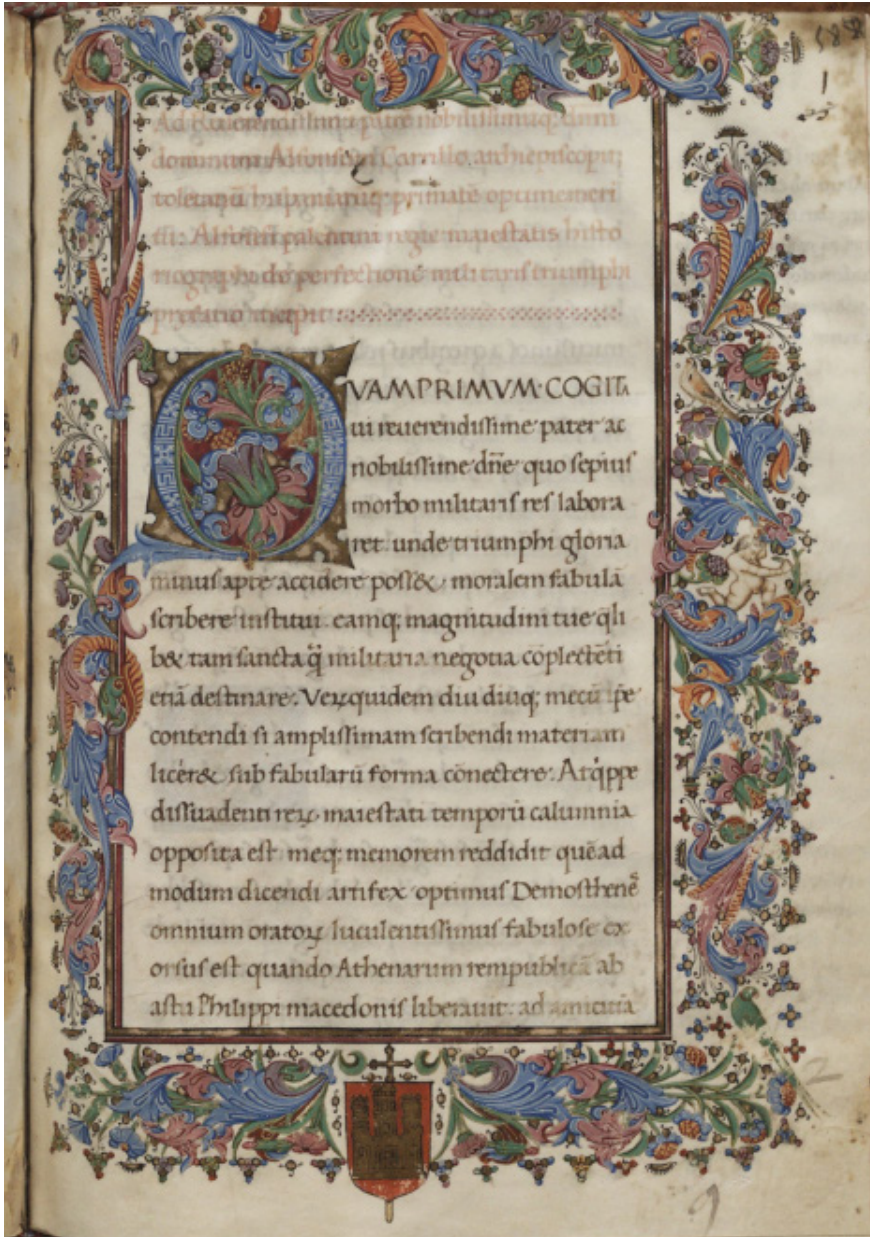 Ad Reuerendissimū patrē nobilissimūq; dūm
dominum Alfonsum Carrillo archiepiscopū
toletanū hispaniarūq; primatē optume meri
tū: Alfonsi palentini regie maiestatis histo
riographi de perfectione militaris triumphi
prefatio incipit
QVAM PRIMVM· COGITA
ui reuerendissime pater ac
nobilissime dn̄e quo sepius
morbo militaris res labora
ret unde triumphi gloria
minus apte accidere poss&· moralem fabulā
scribere institui. eamq; magnitudini tue q̄li
b& tam sancta q̄ militaria negotia cōplectēti
etiā destinare. Veꝝ quidem diu diuq; mecū ip̄e
contendi si amplissimam scribendi materiam
licer& sub fabularū forma cōnectere. Atq̄ppe
dissuadenti reꝝ maiestati temporū calumnia
opposita est meq; memorem reddidit quēad
modum dicendi artifex optimus Demosthenes
omnium oratoꝝ luculentissimus fabulose ex
orsus est quando Athenarum rempublicā ab
astu Philippi macedonis liberauit. ad amicitiā